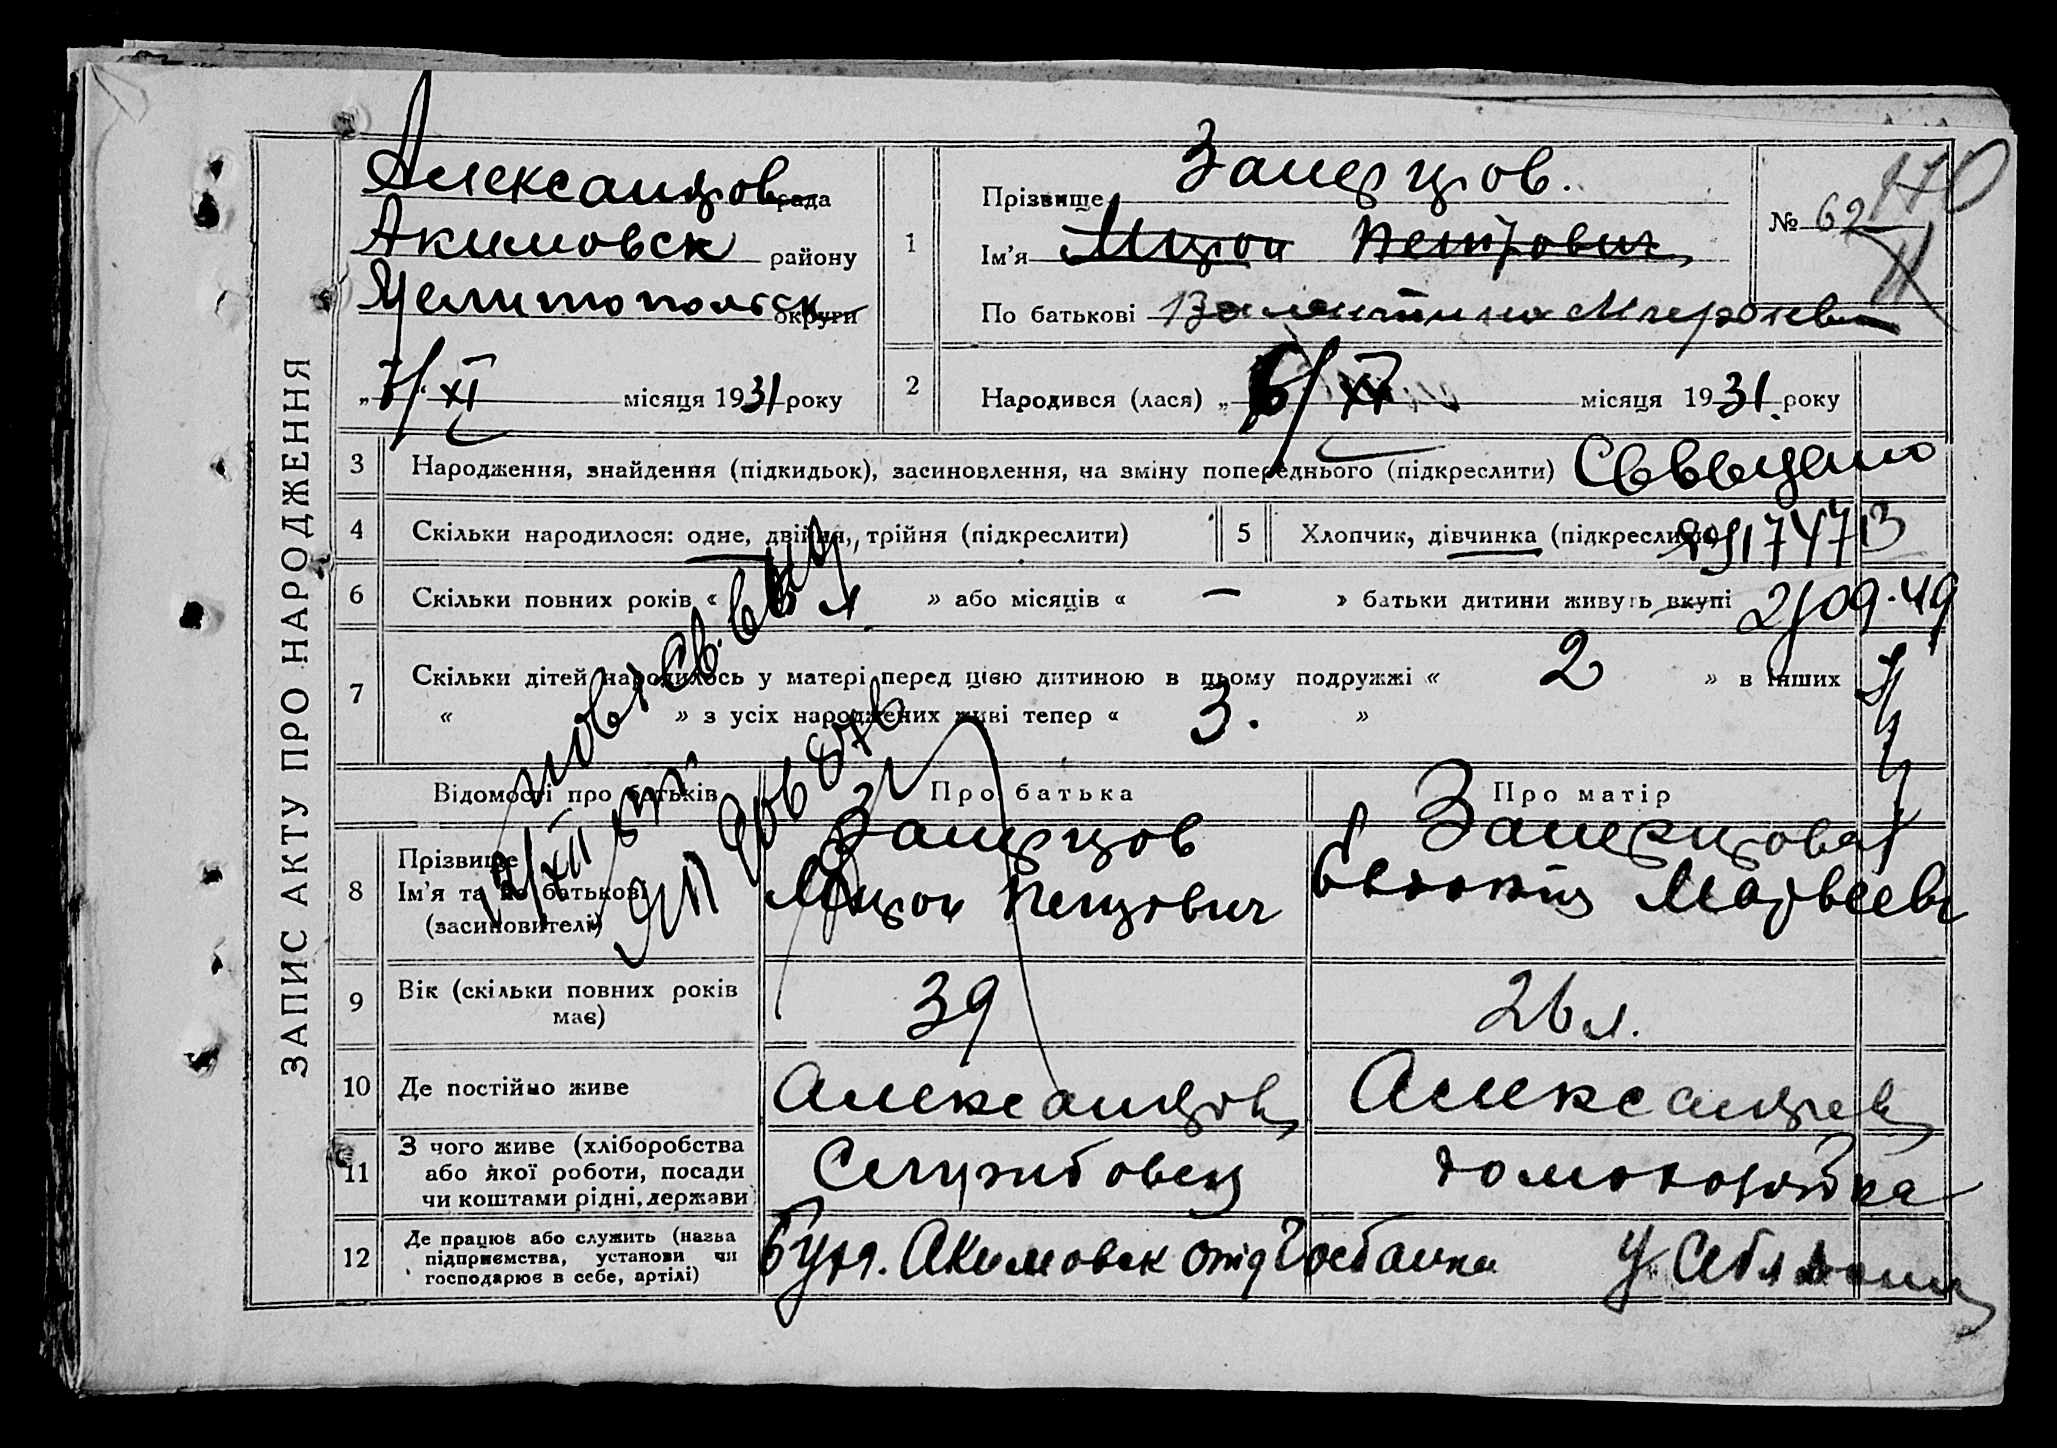 ЗАПИС АКТУ ПРО НАРОДЖЕННЯ
Александров рада
Акимовск району
Мелитопольск округи
„7/“ XI місяця 1931 року
1
Прізвище Занерцов.
Ім'я Мирон Петрович
По батькові Валентина Мироновна
№ 62
170
2
Народився (лася) „6/ XI місяця 1931 року
3 Народження, знайдення (підкидьок), засиновлення, на зміну попереднього (підкреслити)
4 Скільки народилося: одне, двійня, трійня (підкреслити)
5 Хлопчик, дівчинка (підкреслити)
6 Скільки повних років « » або місяців « — » батьки дитини живуть вкупі
2/09.49
7 Скільки дітей народилось у матері перед цією дитиною в цьому подружжі « 2 » в інших
« » з усіх народжених живі тепер « 3. »
Відомості про батьків
Про батька
Про матір
8 Прізвище
Ім'я та по батькові
(засиновителі)
Занерцов
Мирон Петрович
Занерцова
Матвеевн
9 Вік (скільки повних років має)
39
26 л.
10 Де постійно живе
Александров
Александров
11 З чого живе (хліборобства
або якої роботи, посади
чи коштами рідні, держави)
Службовец
домохозяйка
12 Де працює або служить (назва
підприємства, установи чи
господарює в себе, артілі)
Бухг. Акимовск отд Госбанка